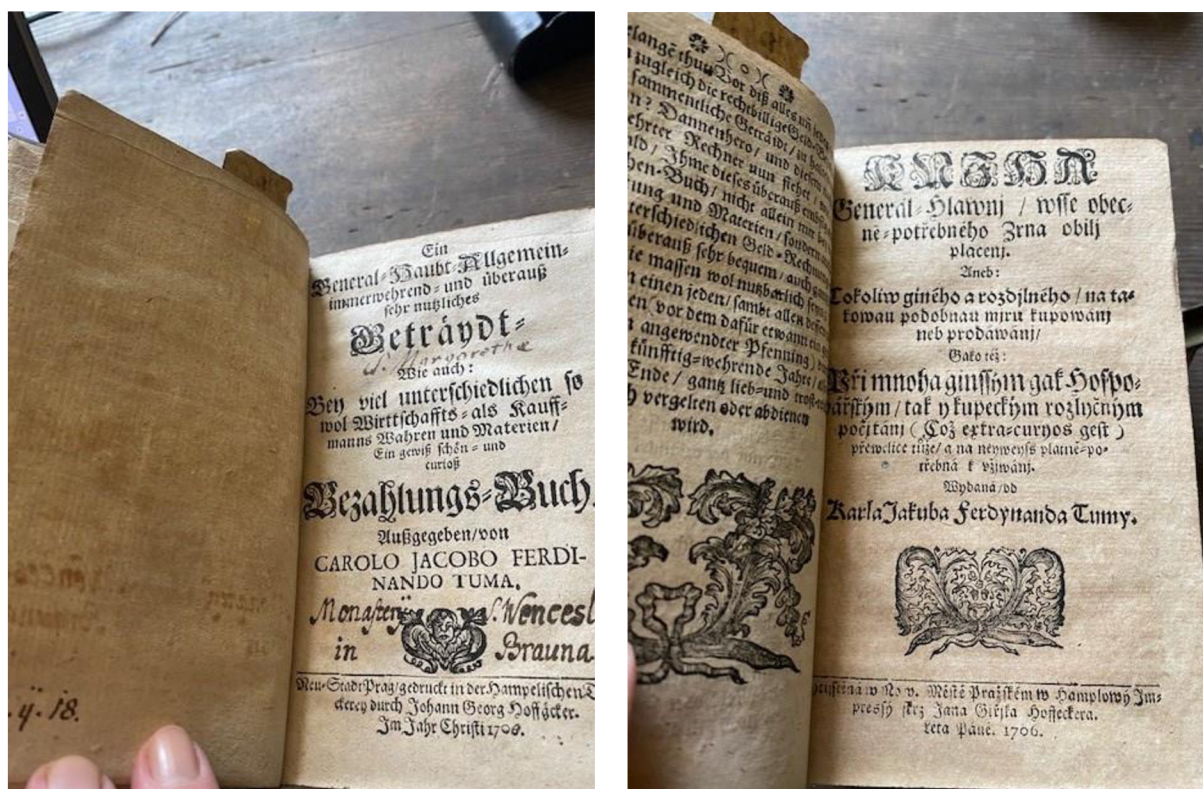 Ein
General-Haubt-Allgemein-
immerwehrend- und überauß
sehr nutzliches
Getráydt-
S. Margarethæ
Wie auch:
Bey viel unterschiedlichen so
wol Wirttschaffts- als Kauff-
manns Wahren und Materien/
Ein gewiß schön- und
curioß
Bezahlungs-Buch.
Außgegeben/von
CAROLO JACOBO FERDI-
NANDO TUMA.
Monasterÿ S. Wencesl
in Brauna
Neu-Stadt Prag/gedruckt in der Hampelischen
ckerey durch Johann Georg Hoffäcker.
Im Jahr Christi 1706.
ÿ. 18.
thuu Vor diß alles
zugleich die rechtbillige Geld-
sammentliche Getráidt/ zu
n? Dannenhero/ und diesem
Rechner nun siehet/
Ihme dieses überauß
-Buch/ nicht allein nur
ung und Materien/ sondern
Geld-Rechnun
überauß sehr bequem/ auch
massen wol nutzbarlich seyn
einen jeden/ sambt allen
vor dem dafür etwann
angewendter Pfenning)
künfftig-wehrende Jahre/
Ende/ gantz lieb-und
vergelten oder abdienen
wird.
KNJHA
General-Hlawnj / wsse obec-
ně-potřebného Zrna obilj
placenj.
Aneb:
Cokoliw giného a rozdjlného / na ta-
kowau podobnau mjru kupowánj
neb prodáwánj/
Gako též:
Při mnoha ginssým gak Hospo-
dářským / tak y kupeckým rozlyčným
počjtánj ( Což extra-curyos gest )
přewelice tůze/ a na neyweyss platně-po-
třebná k vžjwánj.
Wydaná/od
Karla Jakuba Ferdynanda Tumy.
w No v. Městě Pražském w Hamplowý Jm-
pressý skrz Jana Giřjka Hoffeckera.
Leta Páně. 1706.